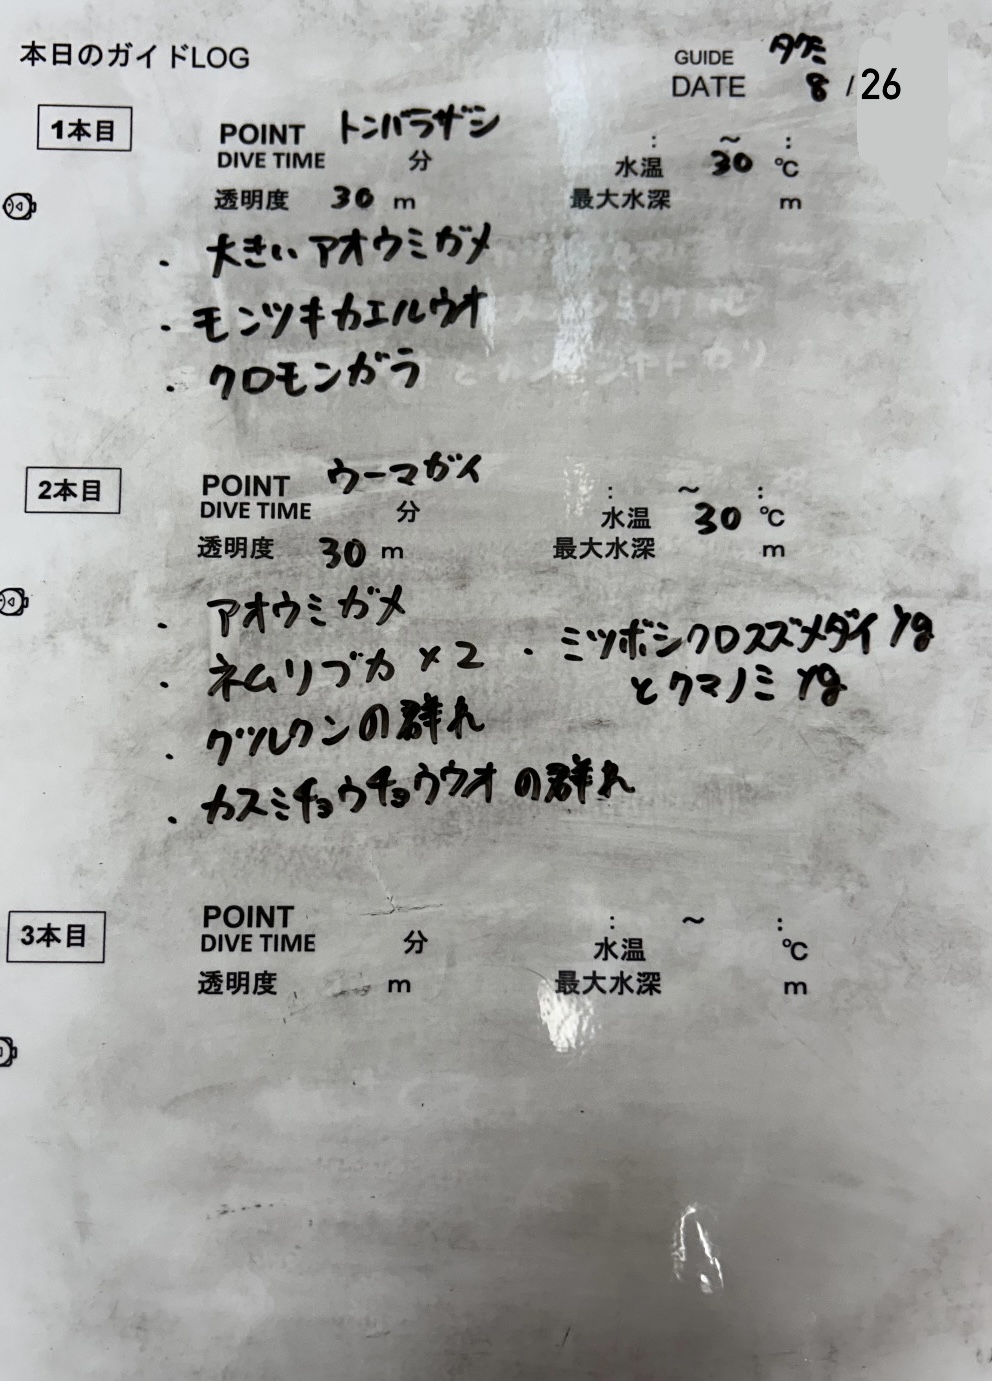 本日のガイドLOG
GUIDE タクミ
DATE 8 / 26
1本目
POINT トンバラザシ : ～ :
DIVE TIME 分 水温 30 ℃
透明度 30 m 最大水深 m
・大きいアオウミガメ
・モンツキカエルウオ
・クロモンガラ
2本目
POINT ウーマガイ : ～ :
DIVE TIME 分 水温 30 ℃
透明度 30 m 最大水深 m
・アオウミガメ
・ネムリブカ×2
・グルクンの群れ
・カスミチョウチョウウオの群れ
・ミツボシクロスズメダイyg
とクマノミyg
3本目
POINT : ～ :
DIVE TIME 分 水温 ℃
透明度 m 最大水深 m